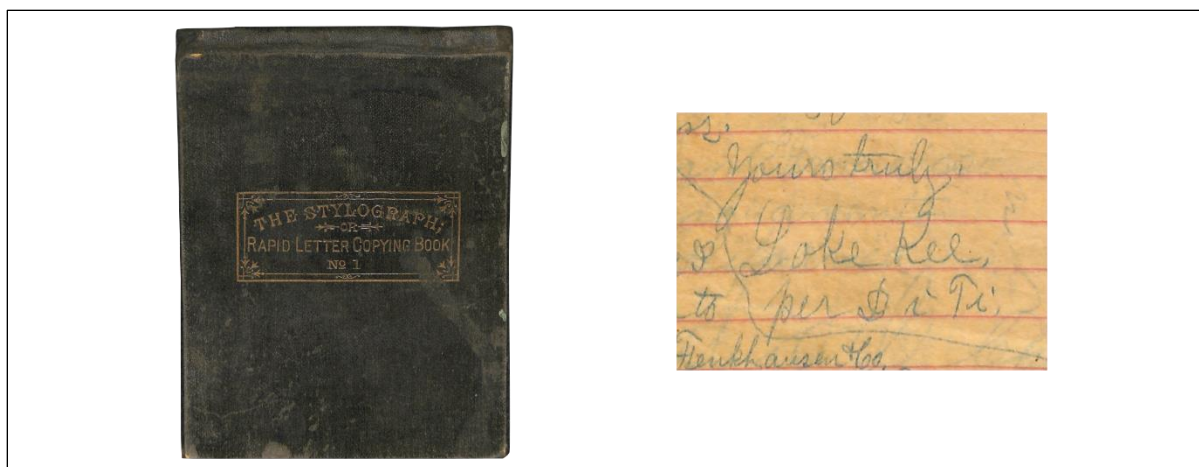 THE STYLOGRAPH;
OR
RAPID LETTER COPYING BOOK
No 1
Yours truly,
Loke Kee,
to per Di Ti,
Henkhausen & Co.